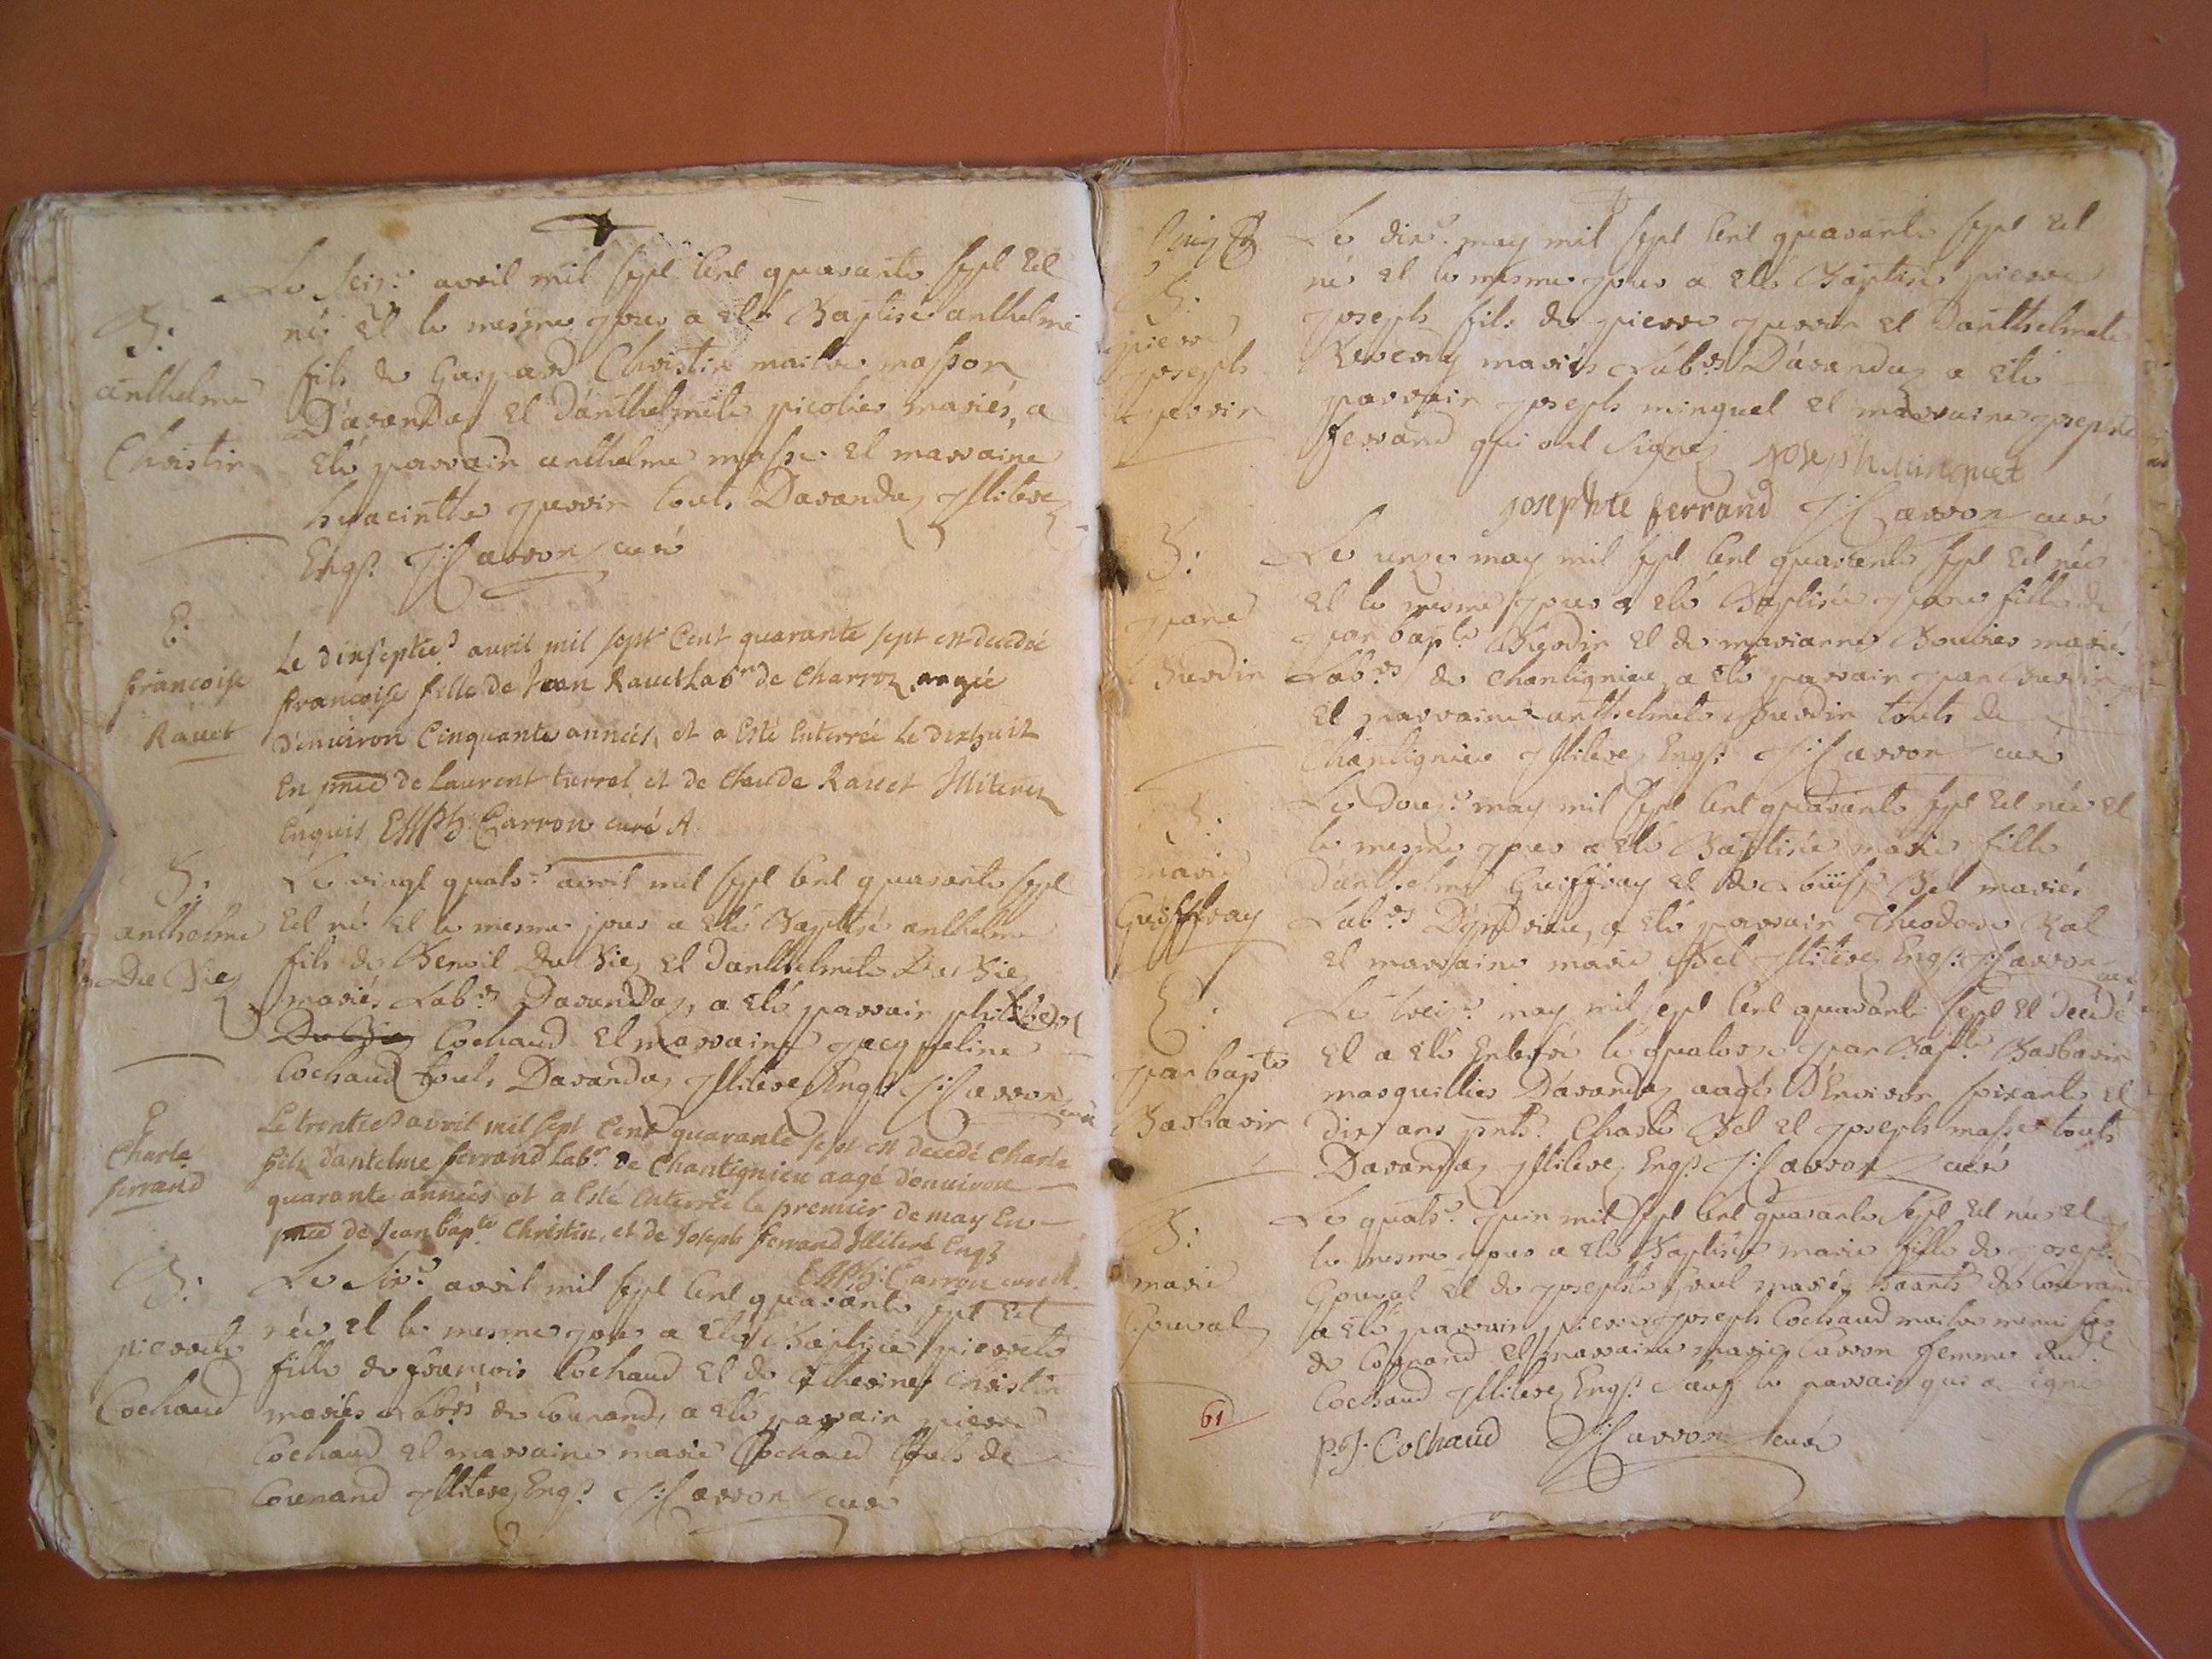 B.
anthelme
Christin
Le seiz.e avril mil sept cent quarante sept est
né et le mesme jour a esté Baptisé anthelme
fils de Gaspard Christin maitre masson
D'arandaz et d'anthelmete picolier mariés, a
esté parrain anthelme masse et marraine
hyacinthe juvvin touts Darandaz Illiterez
Enqs. J: Carron curé
E.
francoise
Rauet
Le dixseptie.e auril mil sept Cent quarante sept est decedée
francoise fille de Jean Rauet Lab.r de Charroz, aagée
d'enuiron Cinquante années, et a Esté Enterrée le dixhuit
En pnce de Laurent turrel et de Claude Rauet Illiterez
Enquis Ph: Carron curé A.
B.
anthelme
Du Niez
Le vingt quatr.e avril mil sept cent quarante sept
est né et le mesme jour a esté Baptisé anthelme
fils de Benoit et danthelmete
mariés Lab.rs Darandaz, a esté parrain philibert
Cochaud et marraine jacqueline
Cochaud touts Darandaz Illiterez Enqs. J: Carron curé
E
Charle
ferrand
Le trentie.e avril mil sept Cent quarante sept est decedé Charle
fils d'antelme ferrand Lab.r de Chantignieu aagé d'enuiron
quarante années et a Esté Enterré le premier de may En
pnce de Jean bap.te Christin, et de Joseph ferrand Illiteré Enqs
Ph: Carron curé A.
B.
pierrete
Cochaud
Le six.e avril mil sept cent quarante sept est
née et le mesme jour a esté Baptisée pierrete
fille de francois Cochaud et de Christin
mariés Lab.rs de Counand, a esté parrain pierre
Cochaud et marraine marie Cochaud touts de
Counand Illiterez Enqs. J: Carron curé
B.
pierre
joseph
juvvin
Le dix.e may mil sept cent quarante sept est
né et le mesme jour a esté Baptisé pierre
joseph fils de pierre juvvin et danthelmete
mariés Lab.rs D'arandaz a esté
parrain joseph minguet et marraine josephte
ferrand qui ont signez josephminguet
josephte ferrand J: Carron curé
B.
jane
Burdin
Le unze may mil sept cent quarante sept est née
et le mesme jour a esté Baptisée jane fille de
jan bap.te Burdin et de marianne Bouvier mariés
Lab.rs de Chantignieu, a esté parrain jan Burdin
et marraine anthelmete Burdin touts de
Chantignieu Illiterez Enqs. J: Carron curé
B.
marie
Guiffray
Le douz.e may mil sept cent quarante sept est née et
le mesme jour a esté Baptisée marie fille
danthelme Guiffray et de Bel mariés
Lab.rs, a esté parrain Theodore
et marraine marie Bel Illiterez Enqs. J: Carron curé
E.
jan bapte
Barbarin
Le treiz.e may mil sept cent quarante sept est decedé
et a esté Enterré le quatorze jan Bapt.e Barbarin
marguillier D'arandaz aagé D'Environ soixante et
dix ans pnts. Charle Bel et joseph masse touts
Darandaz Illiterez Enqs. J: Carron curé
B.
marie
Gouval
Le quatr.e juin mil sept cent quarante sept est née et
le mesme jour a esté Baptisée marie fille de joseph
Gouval et de josephte mariés de Counand
a esté parrain pierre joseph Cochaud maitre
de Counand et marraine marie Carron femme dud.t
Cochaud Illiterez Enqs. sauf le parrain qui a signé
p. J. Cochaud J: Carron curé
61